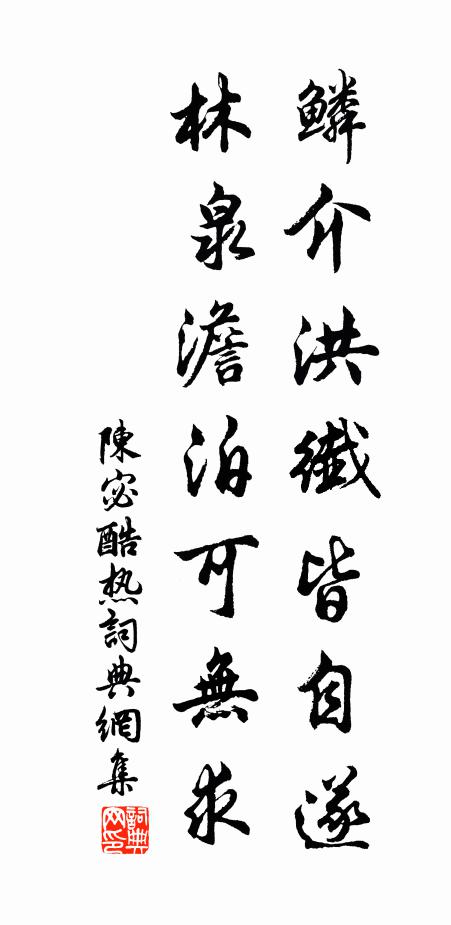 鱗介洪纖皆自遂
林泉澹泊可無求
陳宓酷热詞典網集
詞典网印